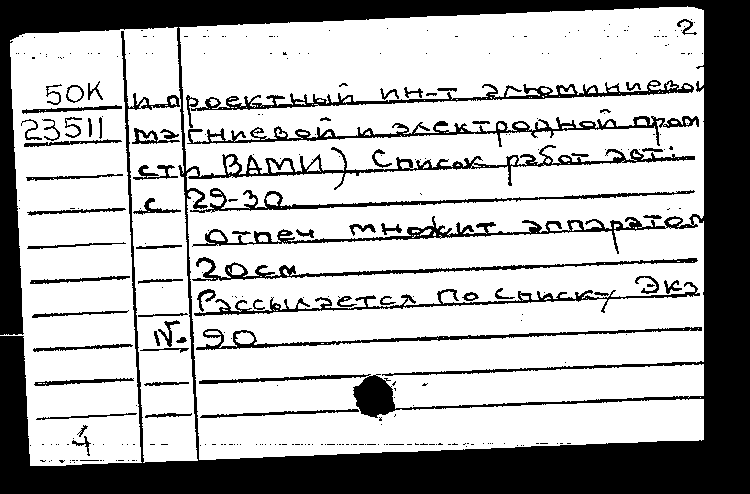 2
50К и проектный ин-т алюминиевой
23511 магниевой и электродной пром
сти ВАМИ). Список работ авт:
с 29-30
Отпеч множит аппаратом
20см
Рассылается по списку Экз
№ 90
4